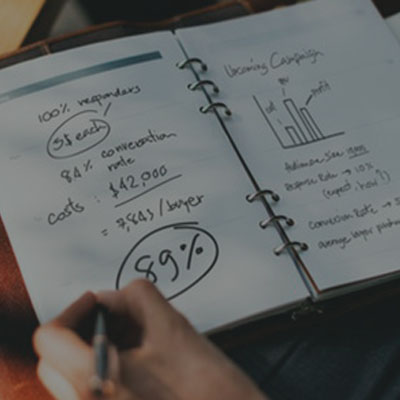 100% responders
5$ each
84% conversation
rate
costs : $42,000
= 7,843 / buyer
89%
Upcoming Campaign
profit
Audience Size
Response Rate → 10%
(expect, how?)
Conversion Rate → 5
average buyer